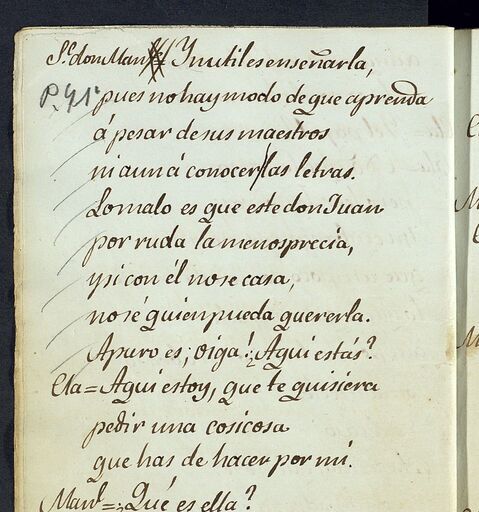 Sr. don Man.l Ynutil es enseñarla,
P. 91a
pues no hay modo de que aprenda
á pesar de sus maestros
ni aun á conocer las letras.
Lo malo es que este don Juan
por ruda la menosprecia,
y si con él no se casa,
no sé quien pueda quererla.
Apuro es; oiga! ¿Aqui estás?
Cla = Aqui estoy, que te quisiera
pedir una cosicosa
que has de hacer por mi.
Manl = ¿Qué es ella?